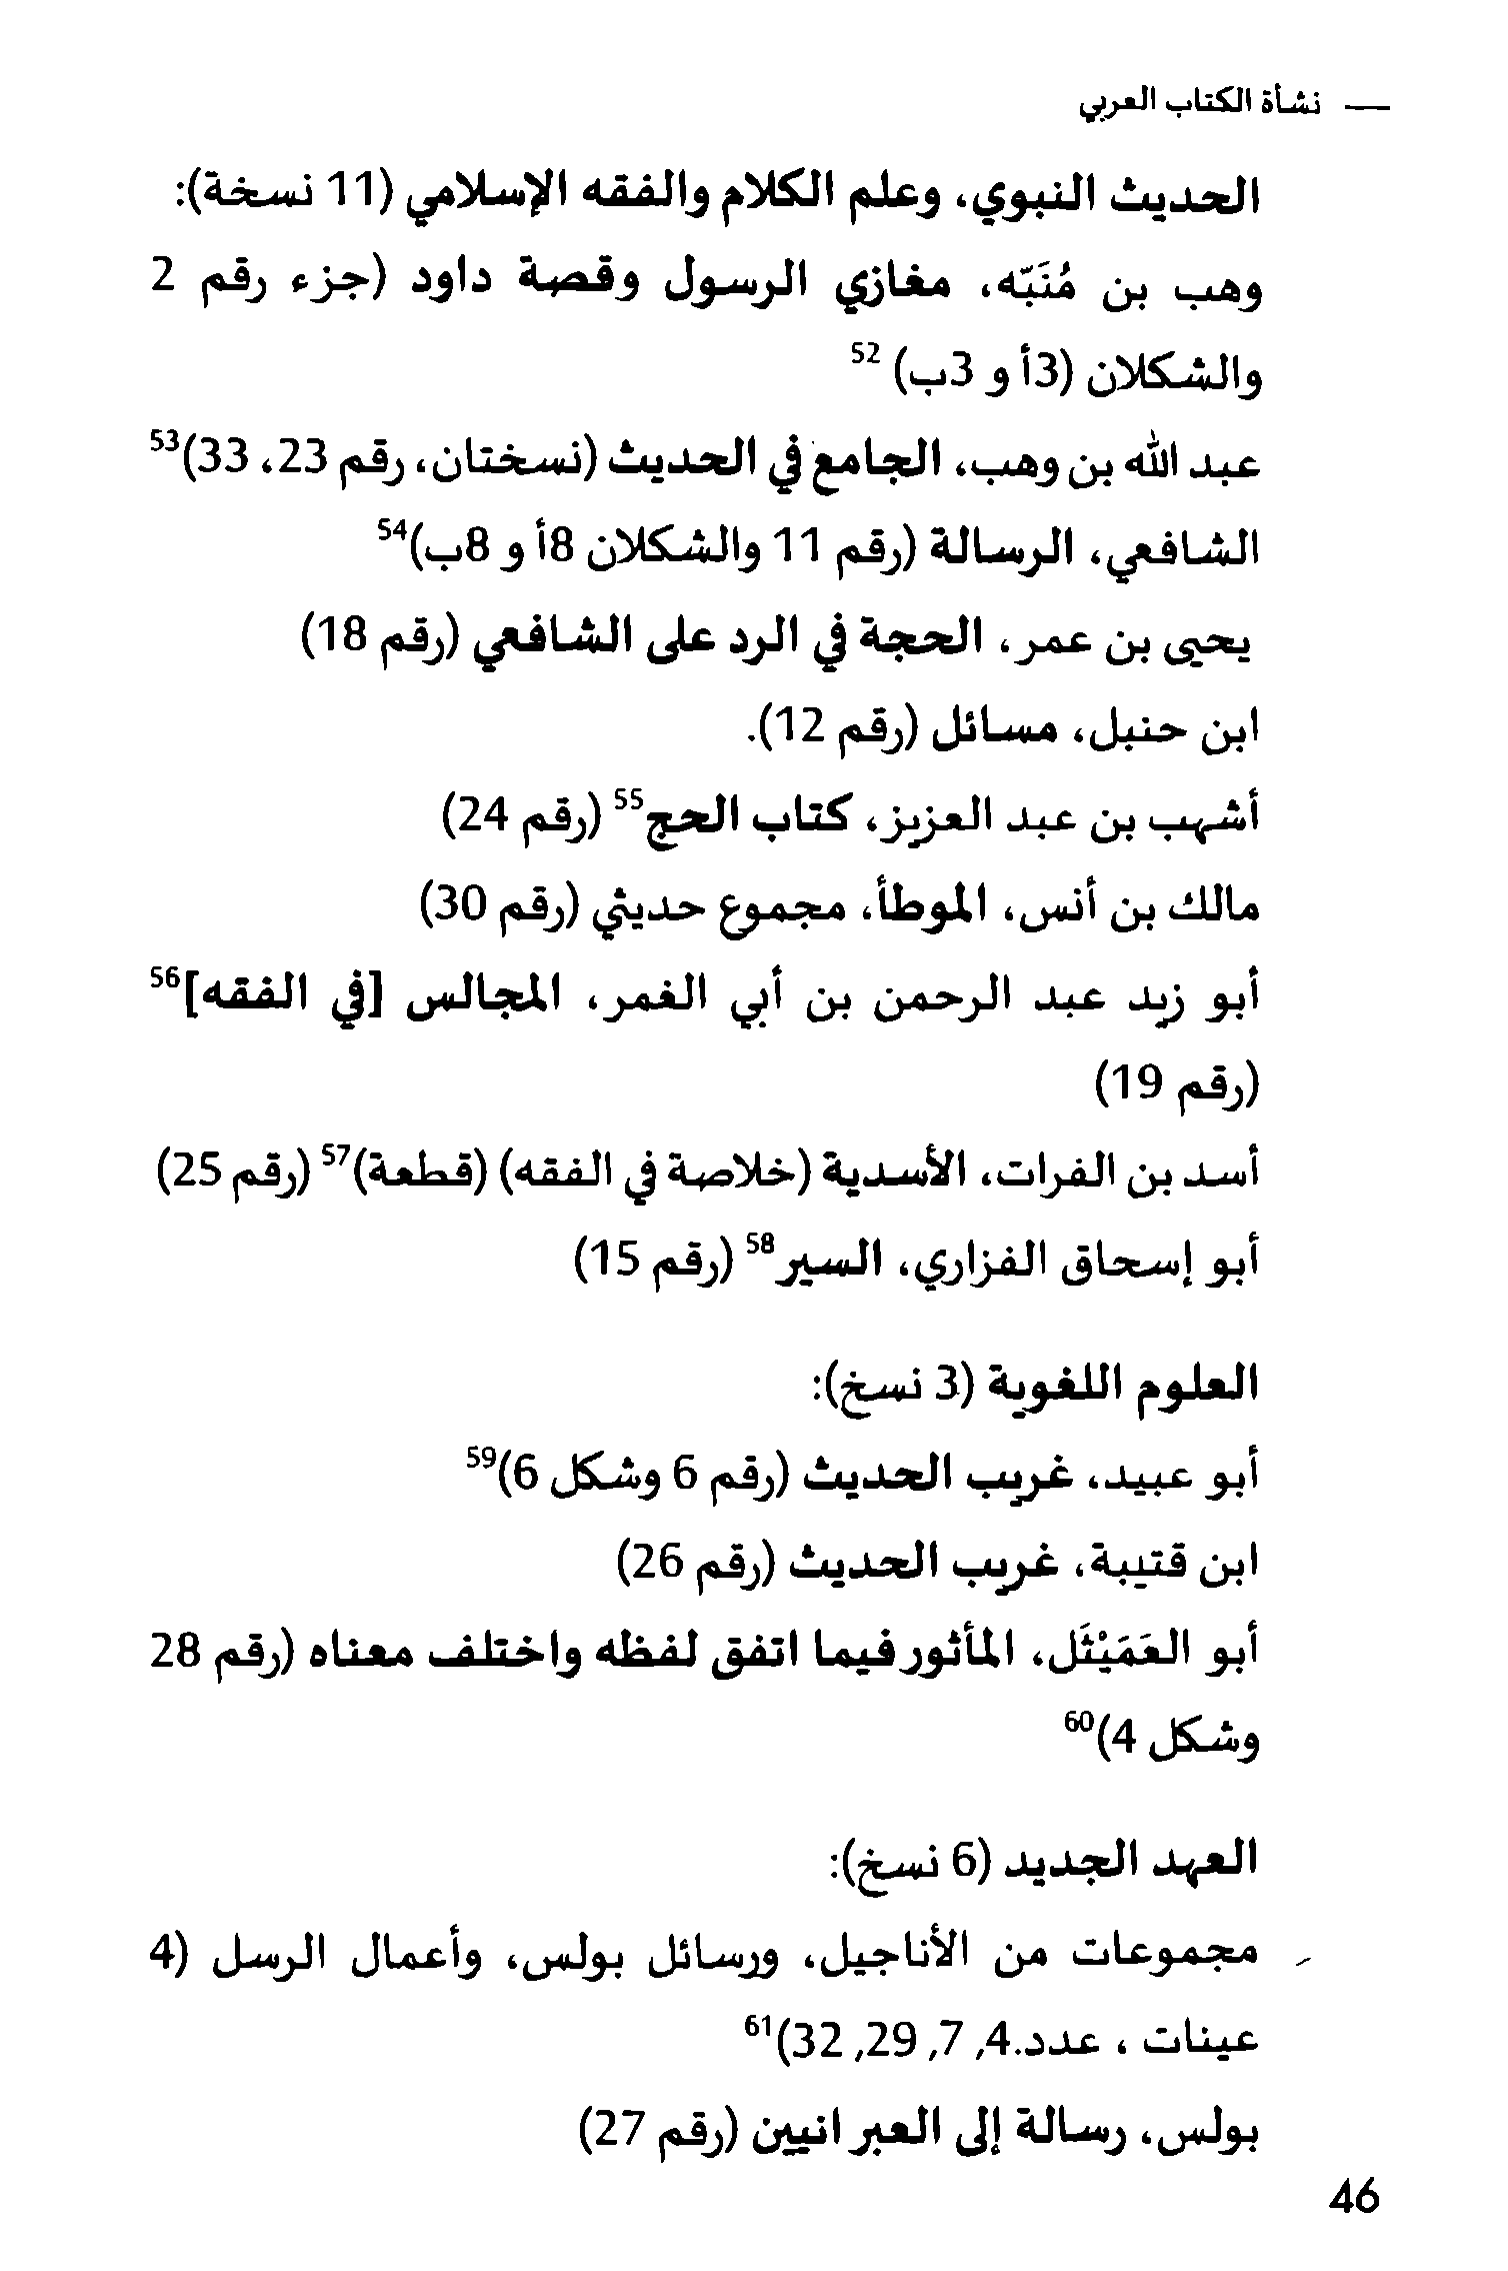 نشأة الكتاب العربي —
الحديث النبوي، وعلم الكلام والفقه الإسلامي (11 نسخة):
وهب بن مُنَبّه، مغازي الرسول وقصة داود (جزء رقم 2
والشكلان (3أ و 3ب) 52
عبد الله بن وهب، الجامع في الحديث (نسختان، رقم 23، 33)53
الشافعي، الرسالة (رقم 11 والشكلان 8أ و 8ب)54
يحيى بن عمر، الحجة في الرد على الشافعي (رقم 18)
ابن حنبل، مسائل (رقم 12).
أشهب بن عبد العزيز، كتاب الحج55 (رقم 24)
مالك بن أنس، الموطأ، مجموع حديثي (رقم 30)
أبو زيد عبد الرحمن بن أبي الغمر، المجالس [في الفقه]56
(رقم 19)
أسد بن الفرات، الأسدية (خلاصة في الفقه) (قطعة)57 (رقم 25)
أبو إسحاق الفزاري، السير58 (رقم 15)
العلوم اللغوية (3 نسخ):
أبو عبيد، غريب الحديث (رقم 6 وشكل 6)59
ابن قتيبة، غريب الحديث (رقم 26)
أبو العَمَيْثَل، المأثور فيما اتفق لفظه واختلف معناه (رقم 28
وشكل 4)60
العهد الجديد (6 نسخ):
مجموعات من الأناجيل، ورسائل بولس، وأعمال الرسل (4
عينات ، عدد.4, 7, 29, 32)61
بولس، رسالة إلى العبرانيين (رقم 27)
46